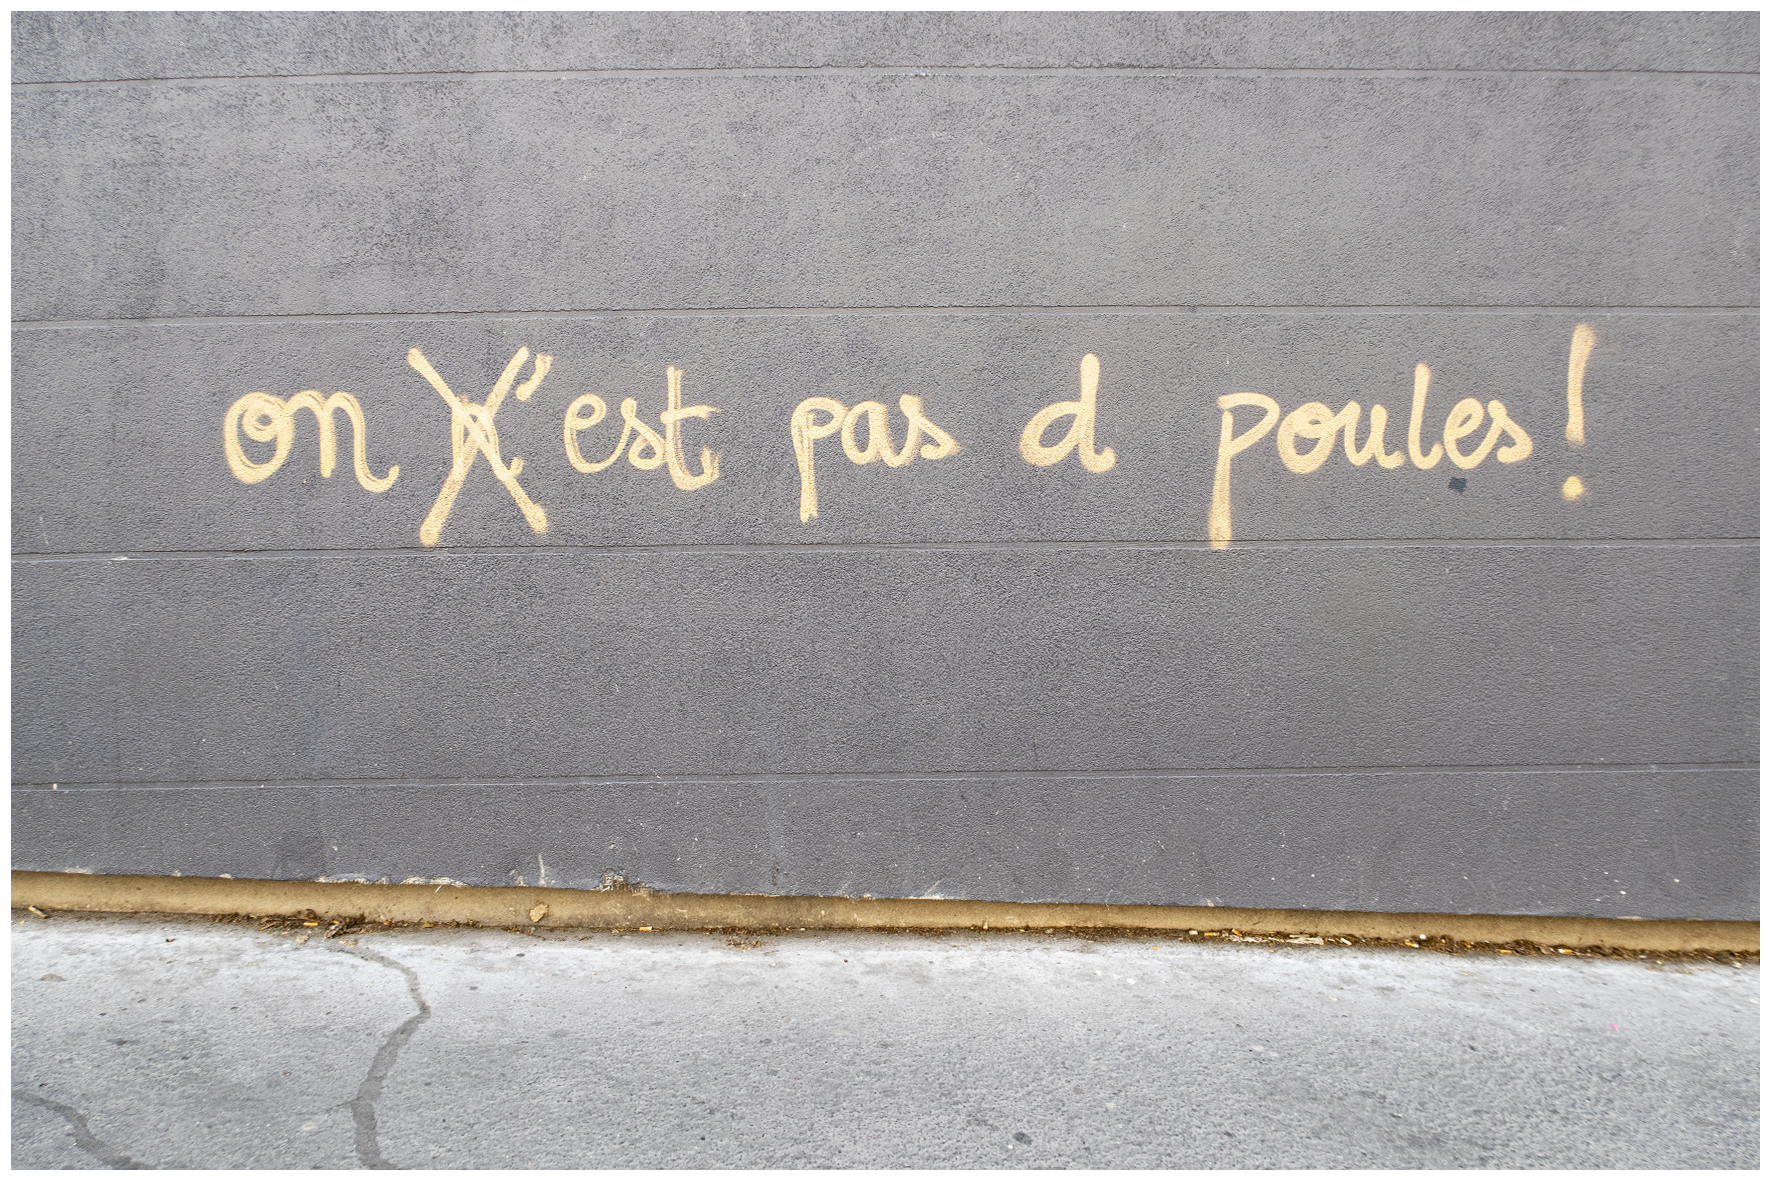 on n'est pas d poules!